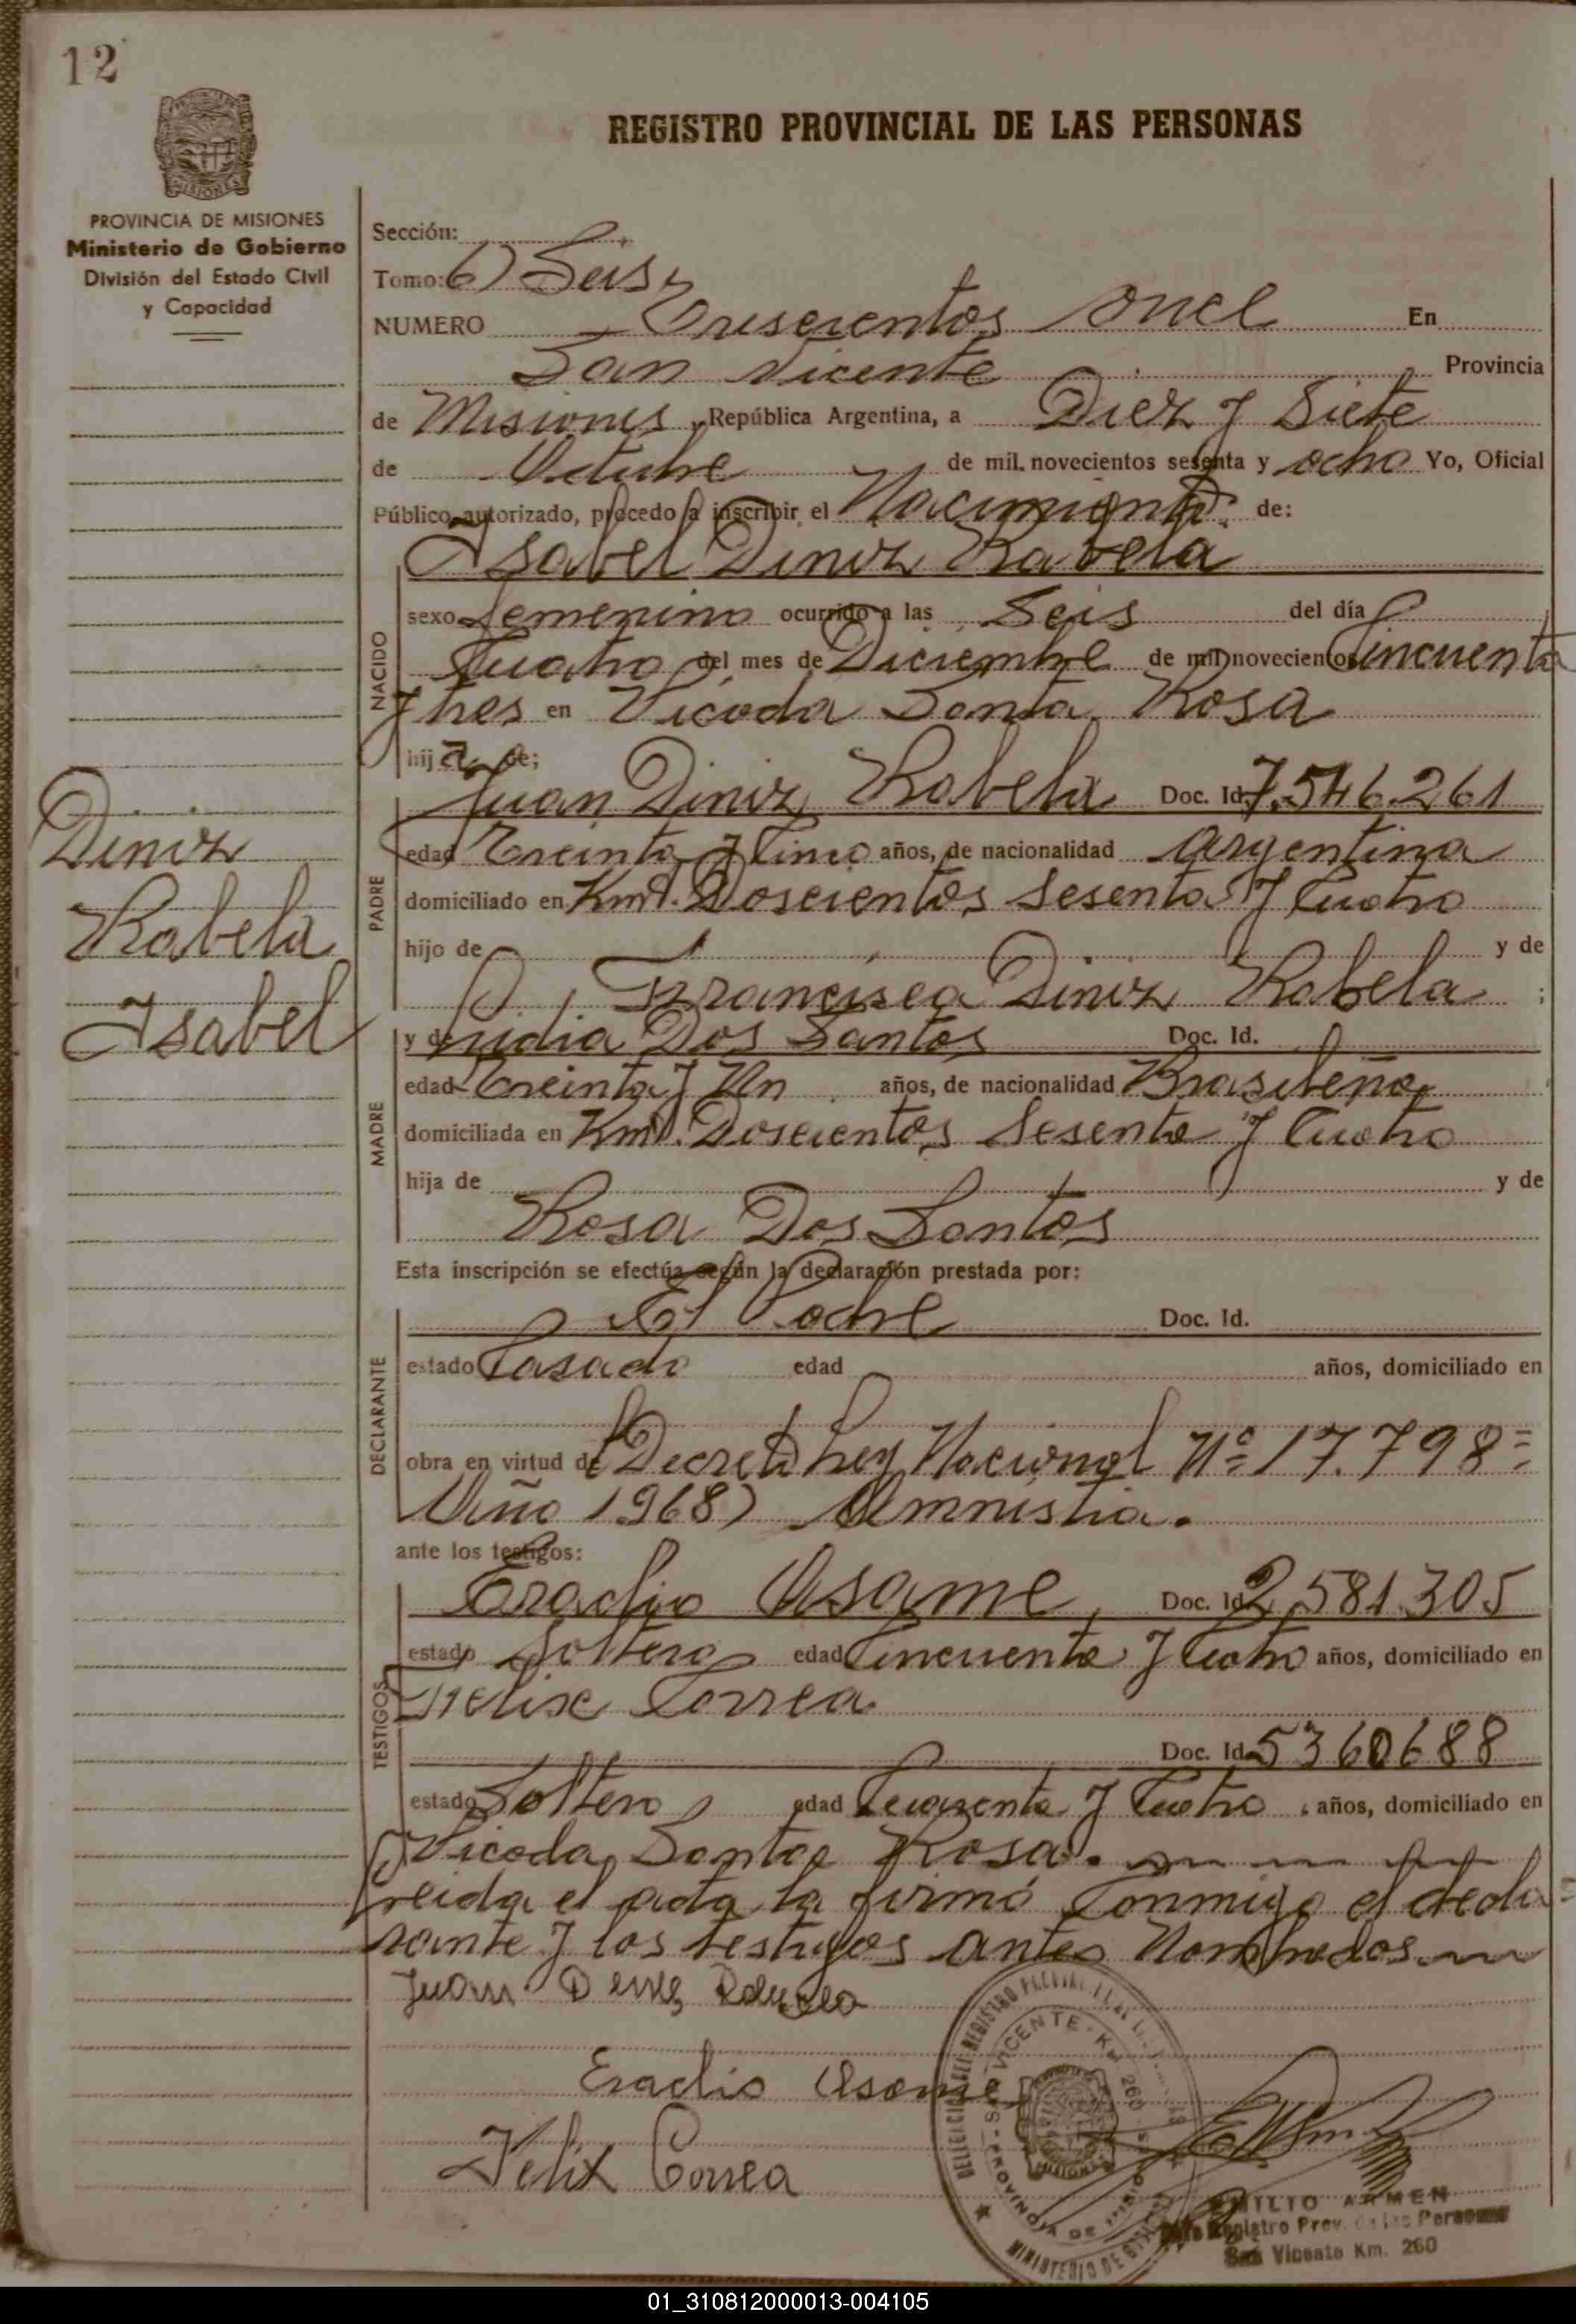 12
REGISTRO PROVINCIAL DE LAS PERSONAS
MISIONES
PROVINCIA DE MISIONES
Ministerio de Gobierno
División del Estado Civil
y Capacidad
Sección:
Tomo: 6) Seis,
NUMERO Trescientos once En
San Vicente Provincia
de Misiones, República Argentina, a Diez y Siete
de Octubre de mil novecientos sesenta y ocho Yo, Oficial
Público autorizado, procedo a inscribir el Nacimiento de:
Isabel Diniz Rabela
NACIDO
sexo femenino ocurrido a las Seis del día
Cuatro del mes de Diciembre de mil novecientos Cincuenta
y tres en Picada Santa Rosa
hija de;
PADRE
Juan Diniz Rabela Doc. Id. 7.546.261
edad Treinta y Cinco años, de nacionalidad Argentina
domiciliado en Kmt. Doscientos Sesenta y Cuatro
hijo de y de
Francisca Diniz Rabela ;
Diniz
Rabela
Isabel
MADRE
y de Lidia Dos Santos Doc. Id.
edad Treinta y Un años, de nacionalidad Brasileña
domiciliada en Kmt. Doscientos Sesenta y Cuatro
hija de y de
Rosa Dos Santos
Esta inscripción se efectúa según la declaración prestada por:
DECLARANTE
El Padre Doc. Id.
estado Casado edad años, domiciliado en
obra en virtud de Decreto Ley Nacional Nº 17.798=
Año 1968) Amnistia.
ante los testigos:
TESTIGOS
Eradio Asame, Doc. Id. 2,581.305
estado Soltero edad Cincuenta y Cuatro años, domiciliado en
Felix Correa
Doc. Id. 5360688
estado Soltero edad Cuarenta y Cuatro años, domiciliado en
Picada Santa Rosa.
Leida el acta la firmó Conmigo el decla=
rante y los testigos antes Nombrados
Juan
Eradio Asame
Felix Correa
SAN VICENTE - KM 260
PROVINCIA DE MISIONES
EMILIO ARMEN
Registro Prov. de las Personas
San Vicente Km. 260
01_310812000013-004105